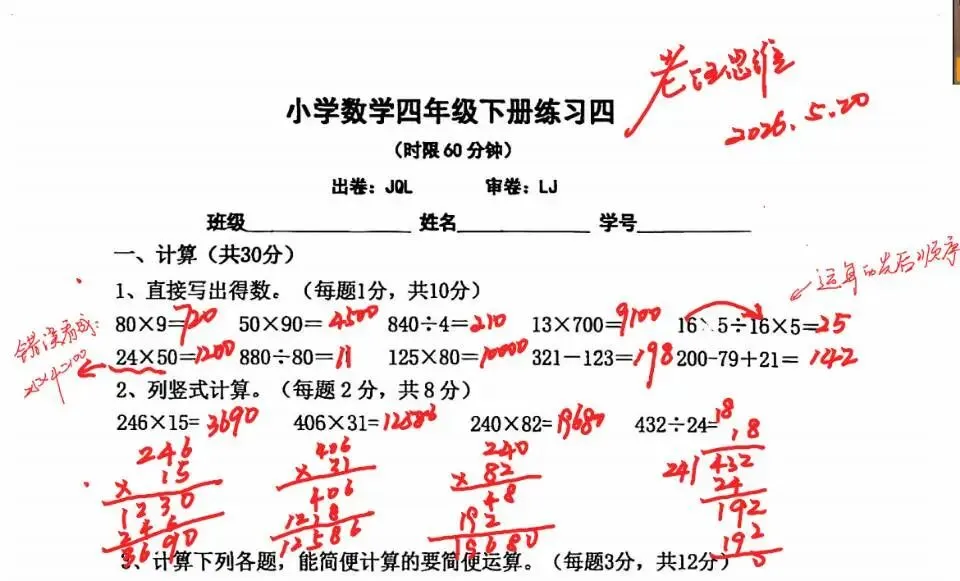 老汪思维
2026.5.20
小学数学四年级下册练习四
（时限60分钟）
出卷：JQL 审卷：LJ
班级 姓名 学号
一、计算（共30分）
运算的先后顺序
1、直接写出得数。（每题1分，共10分）
80×9=720 50×90=4500 840÷4=210 13×700=9100 16×5÷16×5=25
错误看成：
24×50=1200 880÷80=11 125×80=10000 321－123=198 200-79+21=142
2、列竖式计算。（每题 2 分，共 8 分）
246×15=3690 406×31=12586 240×82=19680 432÷24=18
246
×15
1230
246
3690
406
×31
406
1218
12586
240
×82
48
192
19680
18
24 432
24
192
192
0
3、计算下列各题，能简便计算的要简便运算。（每题3分，共12分）